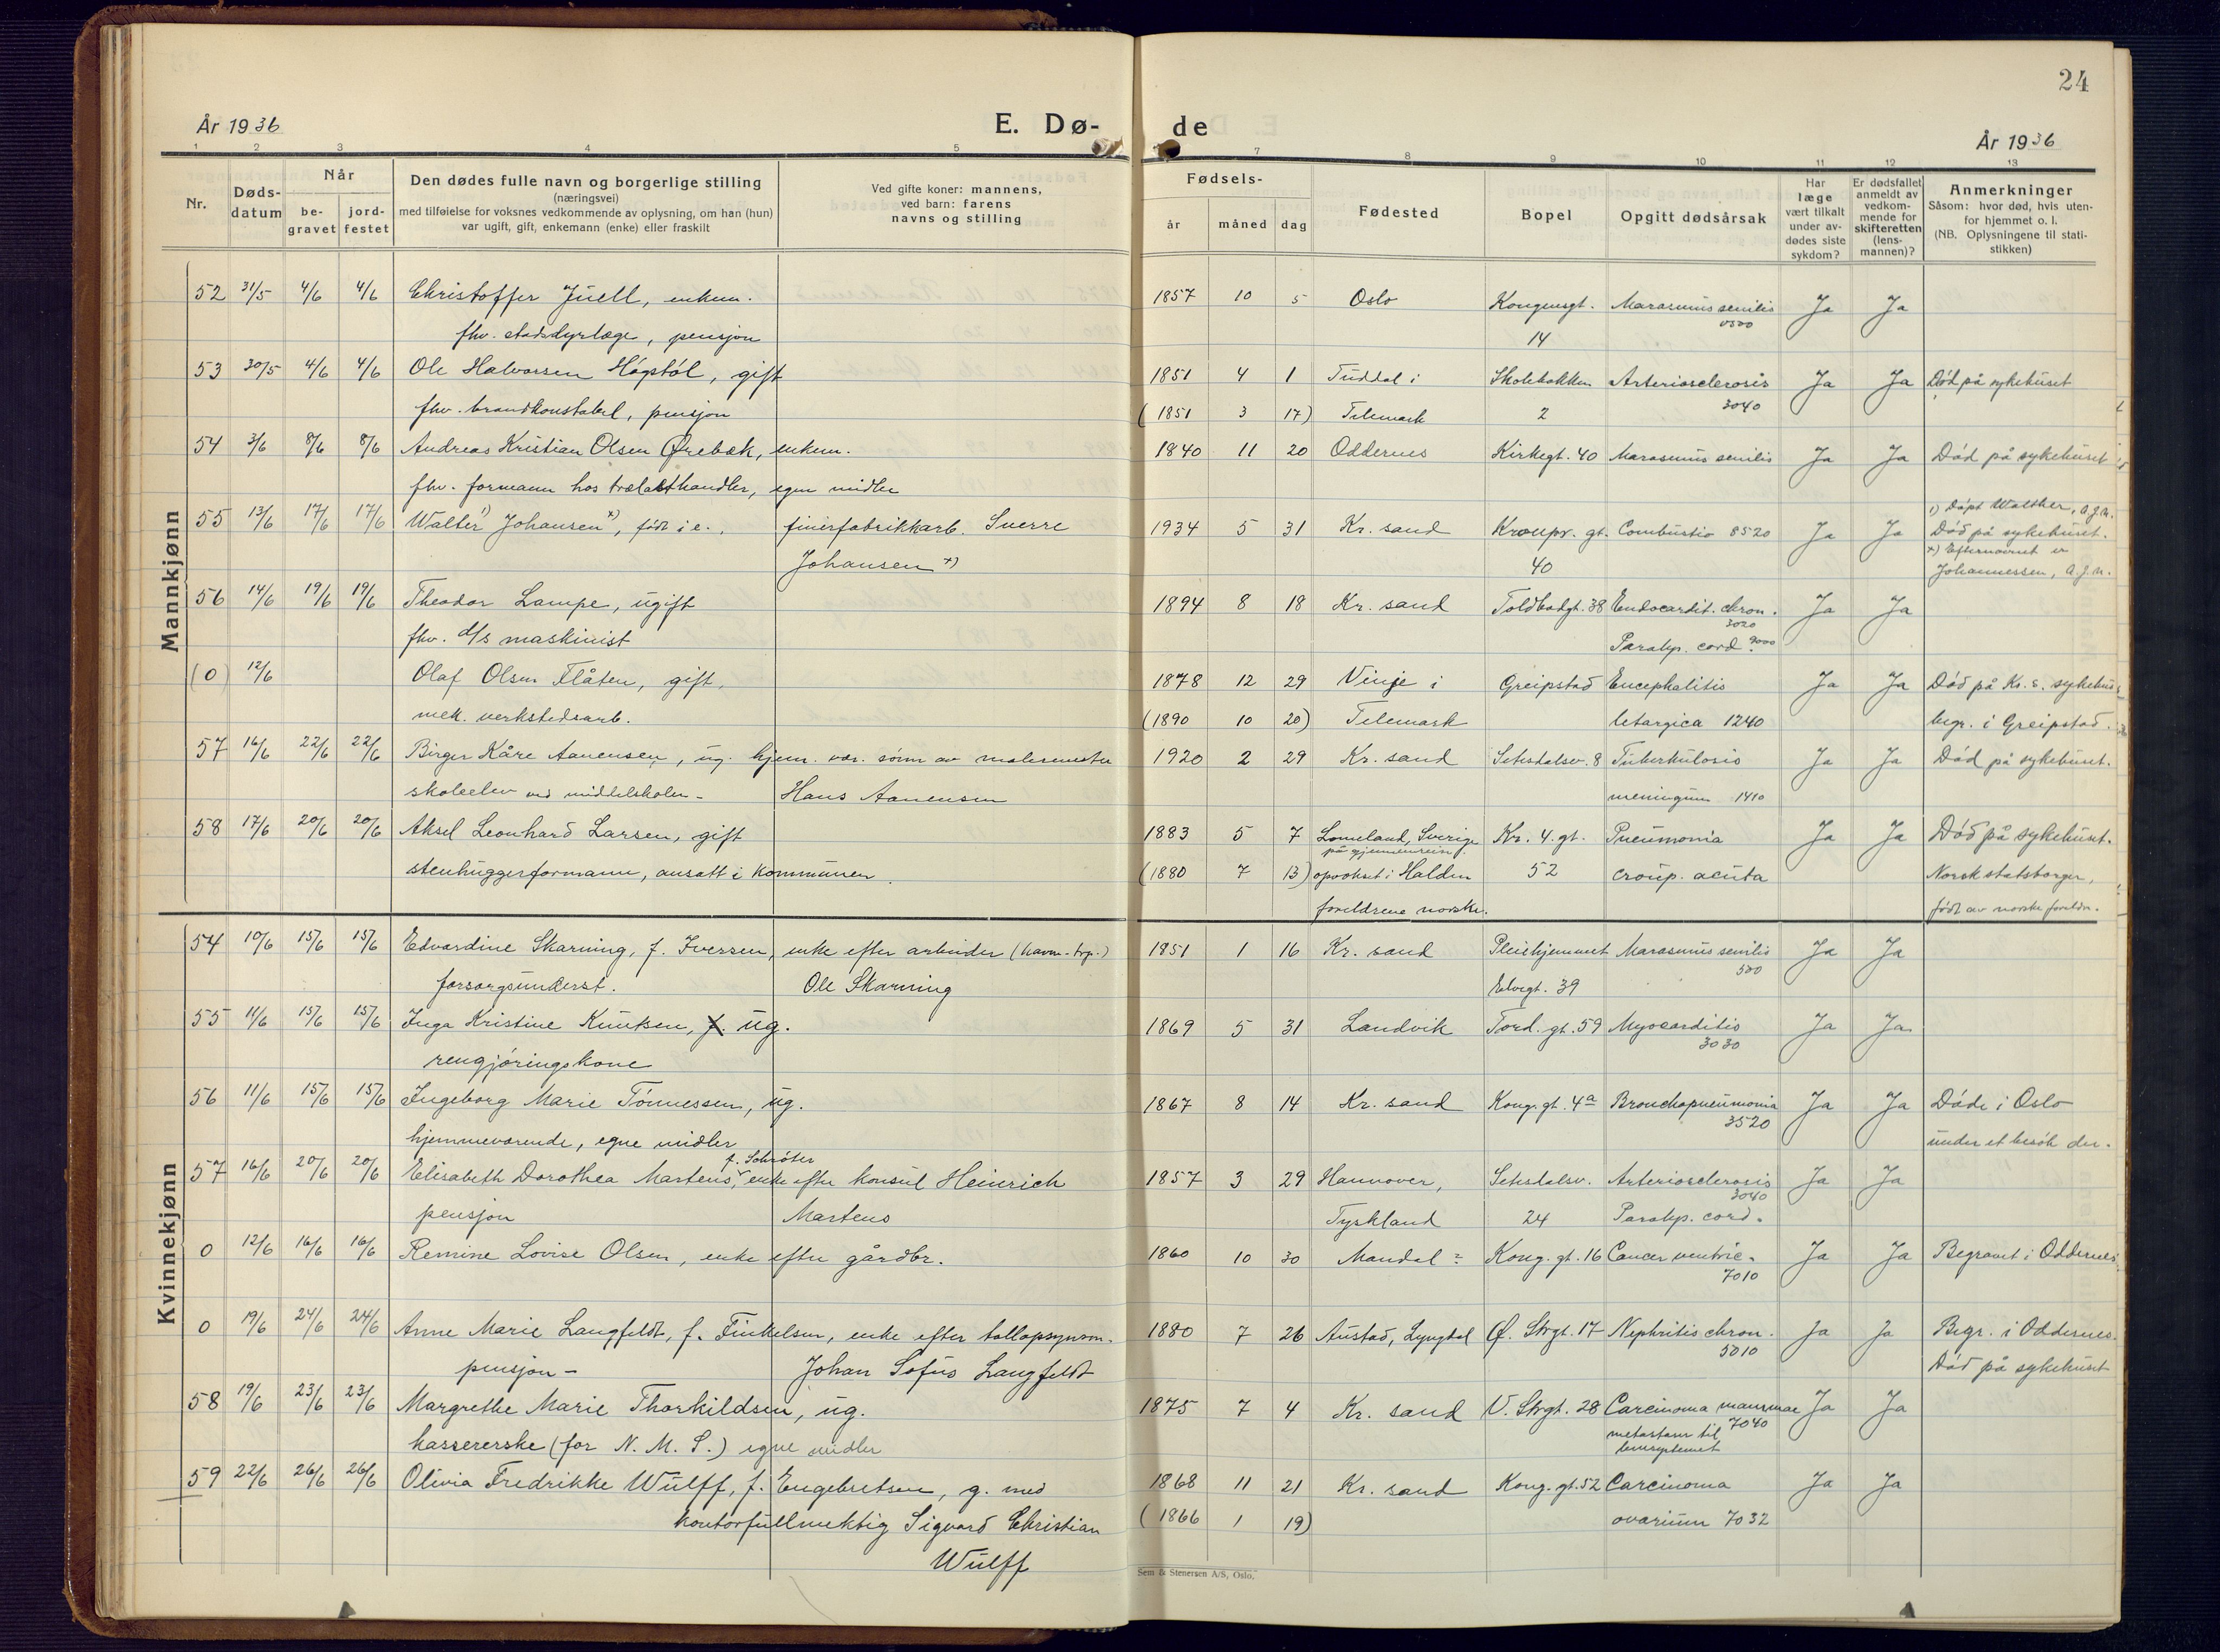 24
År 1936
E. Dø-
de
År 1936
1 2 3 4 5 7 8 9 10 11 12 13
Nr.
Døds-
datum
Når
be-
gravet
jord-
festet
Den dødes fulle navn og borgerlige stilling
(næringsvei)
med tilføielse for voksnes vedkommende av oplysning, om han (hun)
var ugift, gift, enkemann (enke) eller fraskilt
Ved gifte koner: mannens,
ved barn: farens
navns og stilling
Fødsels-
år måned dag
Fødested
Bopel
Opgitt dødsårsak
Har
læge
vært tilkalt
under av-
dødes siste
sykdom?
Er dødsfallet
anmeldt av
vedkom-
mende for
skifteretten
(lens-
mannen)?
Anmerkninger
Såsom: hvor død, hvis uten-
for hjemmet o. l.
(NB. Oplysningene til stati-
stikken)
Mannkjønn
52 31/5 4/6 4/6 Christoffer Juell, enkem. 1857 10 5 Oslo Kongensgt. Marasmus senilis Ja Ja
fhv. stadsdyrlæge, pensjon 14
53 30/5 4/6 4/6 Ole Halvorsen Høgstøl, gift 1851 4 1 Tuddal i Skolebakken Arteriosclerosis Ja Ja Død på sykehuset
fhv. brandkonstabel, pensjon (1851 3 17) Telemark 2 3040
54 3/6 8/6 8/6 Andreas Kristian Olsen Ørebæk, enkem. 1840 11 20 Oddernes Kirkegt. 40 Marasmus senilis Ja Ja Død på sykehuset
fhv. formann hos trælasthandler, egne midler
55 13/6 17/6 17/6 Walter 1) Johansen x), født i e., finérfabrikkarb. Sverre 1934 5 31 Kr. sand Kronpr. gt. Combustio 8520 Ja Ja 1) Døpt Walther, A.J.N.
Død på sykehuset.
Johansen x) 40 x) Efternavnet er
Johannessen, A.J.N.
56 14/6 19/6 19/6 Theodor Lampe, ugift 1894 8 18 Kr. sand Toldbodgt. 38 Endocardit. chron. Ja Ja
3020
fhv. d/s maskinist Paralys. cord.
(0) 12/6 Olaf Olsen Flåten, gift, 1878 12 29 Vinje i Greipstad Encephalitis Ja Ja Død på Kr. s. sykehus
mek. verkstedsarb. (1890 10 20) Telemark letargica 1240 begr. i Greipstad.
57 16/6 22/6 22/6 Birger Kåre Aanensen, ug. hjem. vær. sønn av malermester 1920 2 29 Kr. sand Setesdalsv. 8 Tuberkulosis Ja Ja Død på sykehuset.
skoleelev ved middelskolen - Hans Aanensen meningum 1410
58 17/6 20/6 20/6 Aksel Leonhard Larsen, gift 1883 5 7 Lomeland, Sverige Kr. 4. gt. Pneumonia Ja Ja Død på sykehuset.
på gjennemreise.
stenhuggerformann, ansatt i kommunen. (1880 7 13) opvokset i Halden 52 croup. acuta Norsk statsborger,
foreldrene norske. født av norske foreldre.
Kvinnekjønn
54 10/6 15/6 15/6 Edvardine Skarning, f. Iversen, enke efter arbeider (havn-) 1851 1 16 Kr. sand Pleiehjemmet Marasmus senilis Ja Ja
forsorgsunderst. Ole Skarning Elvegt. 39
55 11/6 15/6 15/6 Inga Kristine Knutsen, ug. 1869 5 31 Landvik Tord. gt. 59 Myocarditis Ja Ja
3030
rengjøringskone
56 11/6 15/6 15/6 Ingeborg Marie Tønnessen, ug. 1867 8 14 Kr. sand Kong. gt. 4a Bronchopneumonia Ja Ja Døde i Oslo
3520
hjemmeværende, egne midler under et besøk der.
f. Schröter
57 16/6 20/6 20/6 Elisabeth Dorothea Martens, enke efter konsul Heinrich 1857 3 29 Hannover, Setesdalsv. Arteriosclerosis Ja Ja
3040
pensjon Martens Tyskland 24 Paralys. cord.
0 12/6 16/6 16/6 Remine Lovise Olsen, enke efter gårdbr. 1860 10 30 Mandal Kong. gt. 16 Cancer ventric. Ja Ja Begravet i Oddernes
7010
0 19/6 24/6 24/6 Anne Marie Langfeldt, f. Finkelsen, enke efter tollopsynsm. 1880 7 26 Austad, Lyngdal Ø. Strgt. 17 Nephritis chron. Ja Ja Begr. i Oddernes.
5010
pensjon - Johan Sofus Langfeldt Død på sykehuset
58 19/6 23/6 23/6 Margrethe Marie Thorkildsen, ug. 1875 7 4 Kr. sand V. Strgt. 28 Carcinoma mammae Ja Ja
7040
kassererske (for N. M. S.) egne midler metastase til
59 22/6 26/6 26/6 Olivia Fredrikke Wulff, f. Engebretsen, g. med 1868 11 21 Kr. sand Kong. gt. 52 Carcinoma Ja Ja
kontorfullmektig Sigvard Christian (1866 1 19) ovarium 7032
Wulff
Sem & Stenersen A/S, Oslo.